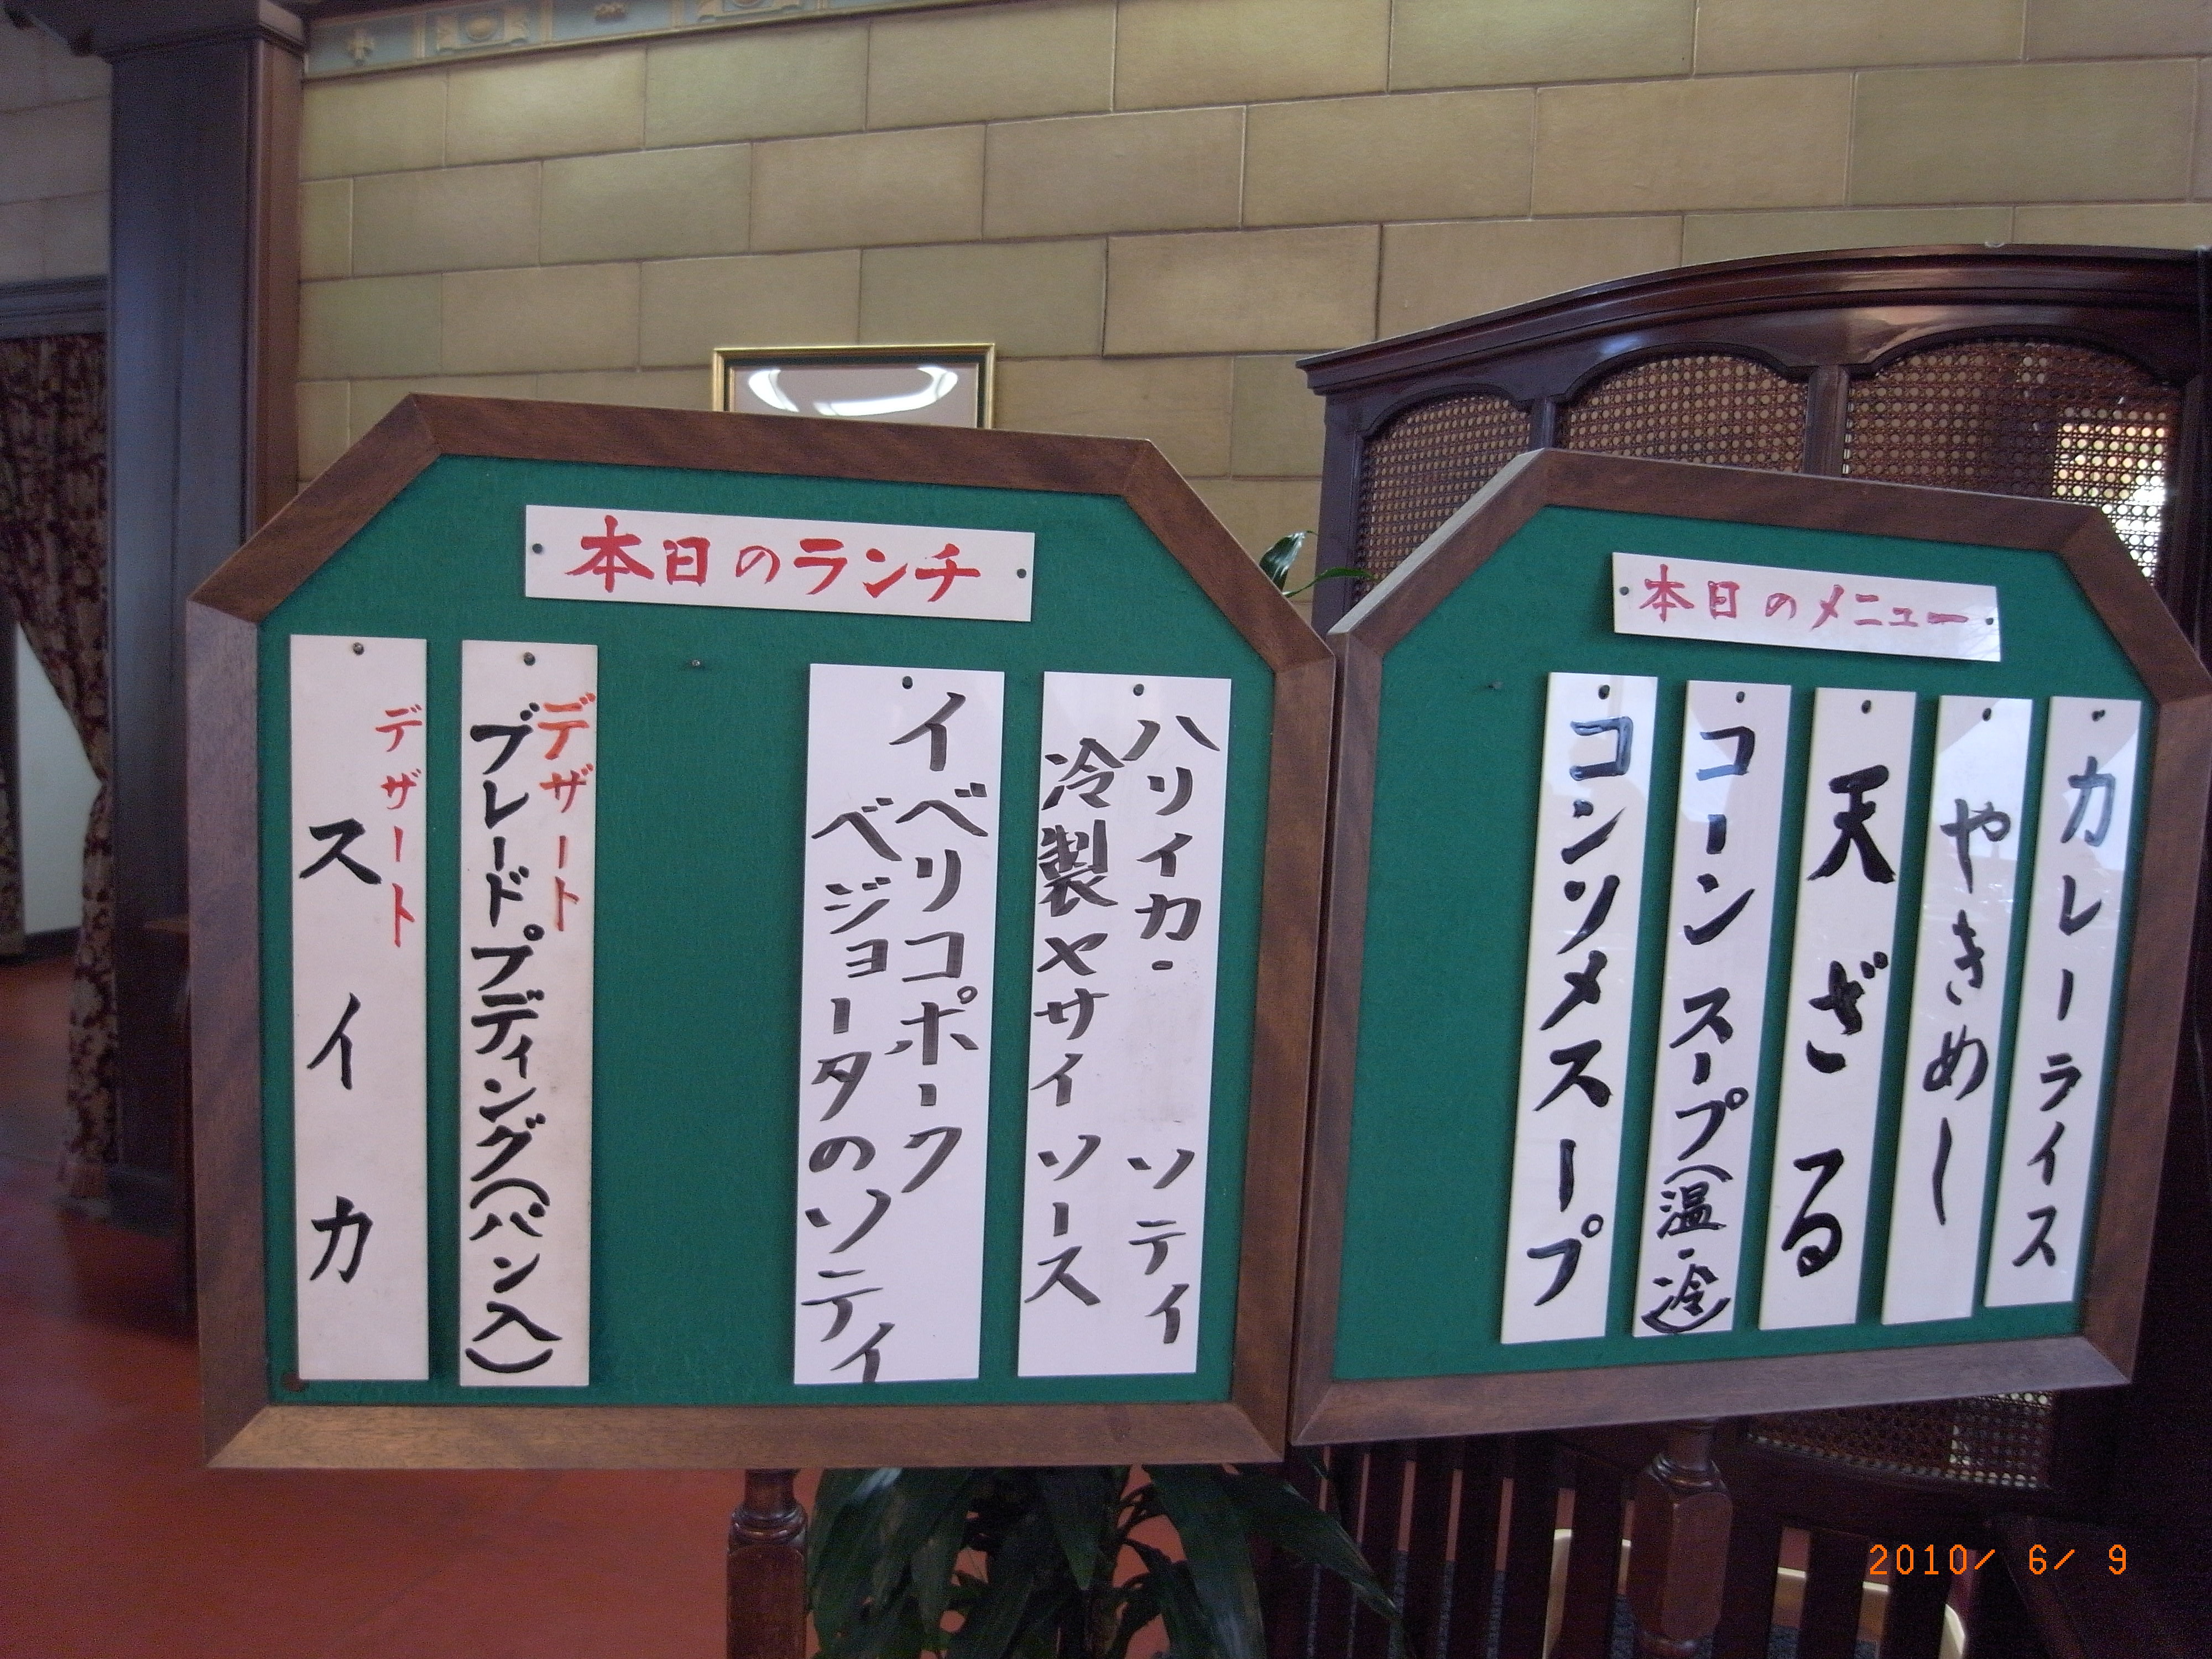 本日のランチ
ハリイカ・ ソティ
冷製ヤサイソース
イベリコポーク
ベジョータのソティ
デザート
ブレードプディング(パン入)
デザート
スイカ
本日のメニュー
カレーライス
やきめし
天ざる
コーンスープ(温・冷)
コンソメスープ
2010/ 6/ 9